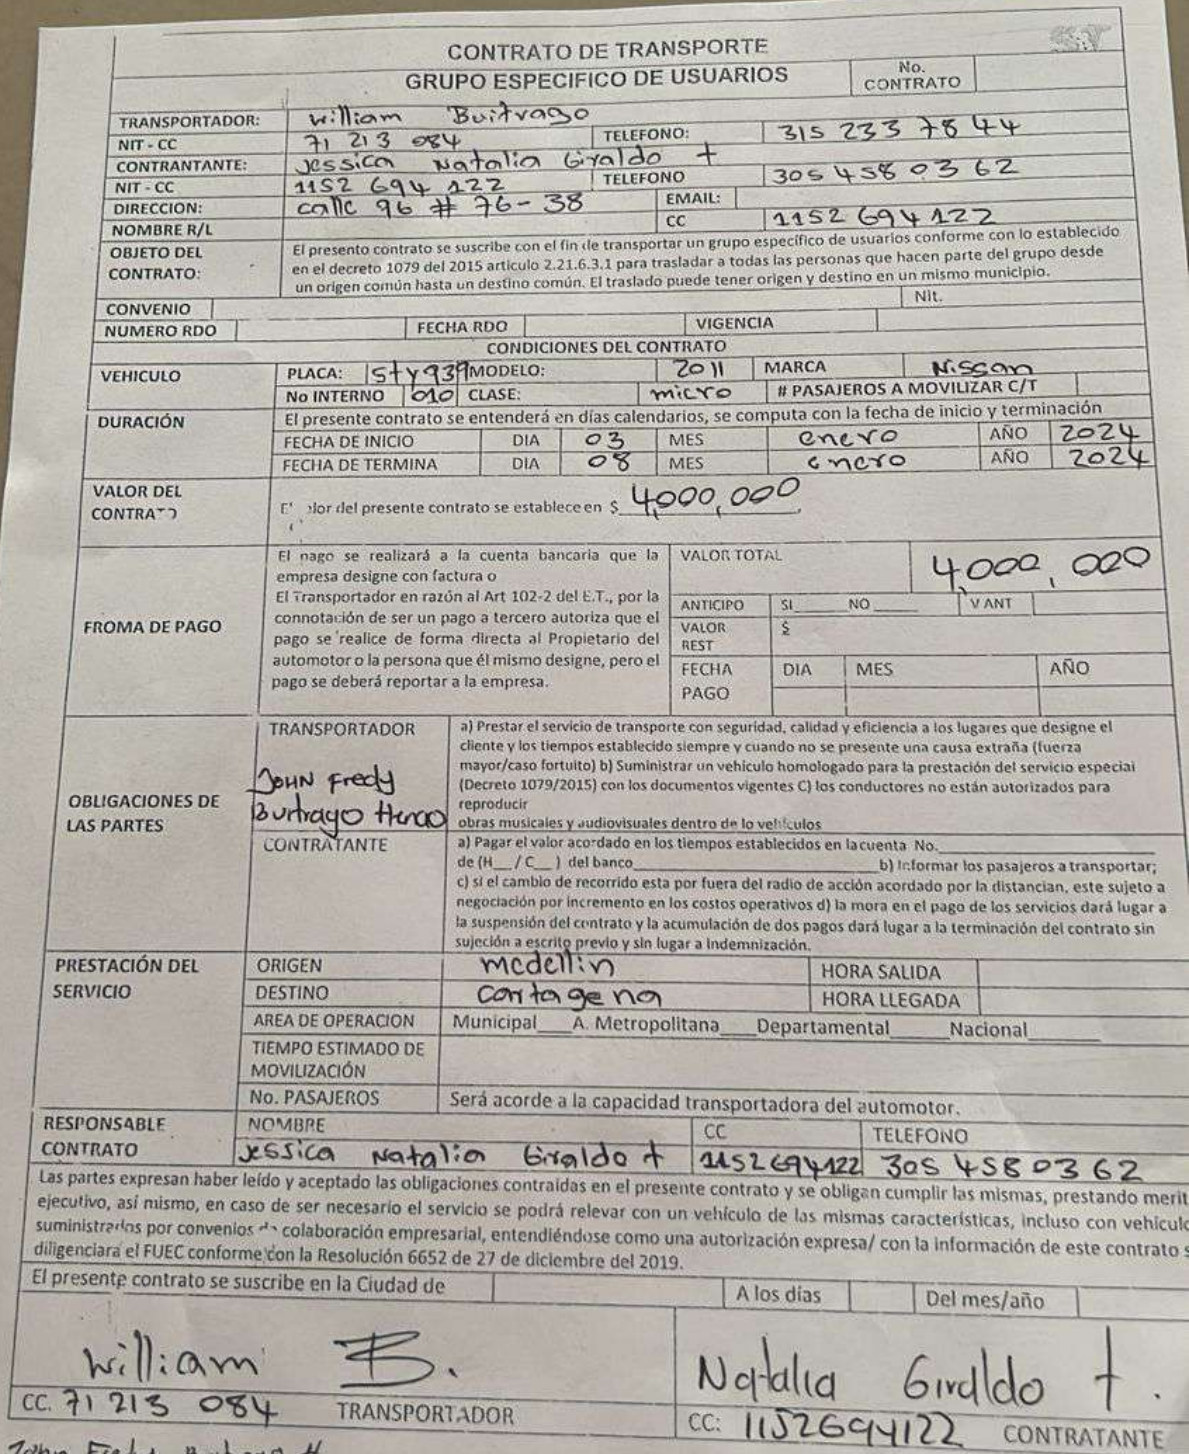 CONTRATO DE TRANSPORTE
GRUPO ESPECIFICO DE USUARIOS
No. CONTRATO
TRANSPORTADOR: William Buitrago
NIT - CC 71 213 084 TELEFONO: 315 233 7844
CONTRANTANTE: Jessica Natalia Giraldo t
NIT - CC 1152 694 122 TELEFONO 305 458 03 62
DIRECCION: calle 96 # 76-38 EMAIL:
NOMBRE R/L CC 1152 694 122
OBJETO DEL CONTRATO:
El presento contrato se suscribe con el fin de transportar un grupo específico de usuarios conforme con lo establecido
en el decreto 1079 del 2015 articulo 2.21.6.3.1 para trasladar a todas las personas que hacen parte del grupo desde
un origen común hasta un destino común. El traslado puede tener origen y destino en un mismo municipio.
CONVENIO Nit.
NUMERO RDO FECHA RDO VIGENCIA
CONDICIONES DEL CONTRATO
VEHICULO PLACA: sty939 MODELO: 2011 MARCA Nissan
No INTERNO 010 CLASE: micro # PASAJEROS A MOVILIZAR C/T
DURACIÓN El presente contrato se entenderá en días calendarios, se computa con la fecha de inicio y terminación
FECHA DE INICIO DIA 03 MES enero AÑO 2024
FECHA DE TERMINA DIA 08 MES enero AÑO 2024
VALOR DEL CONTRATO
valor del presente contrato se establece en $ 4,000,000
FROMA DE PAGO
El pago se realizará a la cuenta bancaria que la
empresa designe con factura o
El Transportador en razón al Art 102-2 del E.T., por la
connotación de ser un pago a tercero autoriza que el
pago se realice de forma directa al Propietario del
automotor o la persona que él mismo designe, pero el
pago se deberá reportar a la empresa.
VALOR TOTAL 4,000,000
ANTICIPO SI____ NO____ V ANT
VALOR REST $
FECHA PAGO DIA MES AÑO
OBLIGACIONES DE LAS PARTES
TRANSPORTADOR
John Fredy
Buitrago Henao
a) Prestar el servicio de transporte con seguridad, calidad y eficiencia a los lugares que designe el
cliente y los tiempos establecido siempre y cuando no se presente una causa extraña (fuerza
mayor/caso fortuito) b) Suministrar un vehículo homologado para la prestación del servicio especial
(Decreto 1079/2015) con los documentos vigentes C) los conductores no están autorizados para
reproducir
obras musicales y audiovisuales dentro de lo vehículos
CONTRATANTE
a) Pagar el valor acordado en los tiempos establecidos en la cuenta No.____
de (H__/C__) del banco____ b) Informar los pasajeros a transportar;
c) si el cambio de recorrido esta por fuera del radio de acción acordado por la distancian, este sujeto a
negociación por incremento en los costos operativos d) la mora en el pago de los servicios dará lugar a
la suspensión del contrato y la acumulación de dos pagos dará lugar a la terminación del contrato sin
sujeción a escrito previo y sin lugar a indemnización.
PRESTACIÓN DEL SERVICIO
ORIGEN medellin HORA SALIDA
DESTINO cartagena HORA LLEGADA
AREA DE OPERACION Municipal____A. Metropolitana____Departamental____Nacional____
TIEMPO ESTIMADO DE MOVILIZACIÓN
No. PASAJEROS Será acorde a la capacidad transportadora del automotor.
RESPONSABLE CONTRATO
NOMBRE CC TELEFONO
Jessica Natalia Giraldo t 1152694122 305 458 03 62
Las partes expresan haber leído y aceptado las obligaciones contraidas en el presente contrato y se obligan cumplir las mismas, prestando merit
ejecutivo, así mismo, en caso de ser necesario el servicio se podrá relevar con un vehículo de las mismas características, incluso con vehículo
suministrados por convenios de colaboración empresarial, entendiéndose como una autorización expresa/ con la información de este contrato s
diligenciara el FUEC conforme con la Resolución 6652 de 27 de diciembre del 2019.
El presente contrato se suscribe en la Ciudad de A los días Del mes/año
William B.
CC. 71 213 084 TRANSPORTADOR
Natalia Giraldo t.
CC: 1152694122 CONTRATANTE